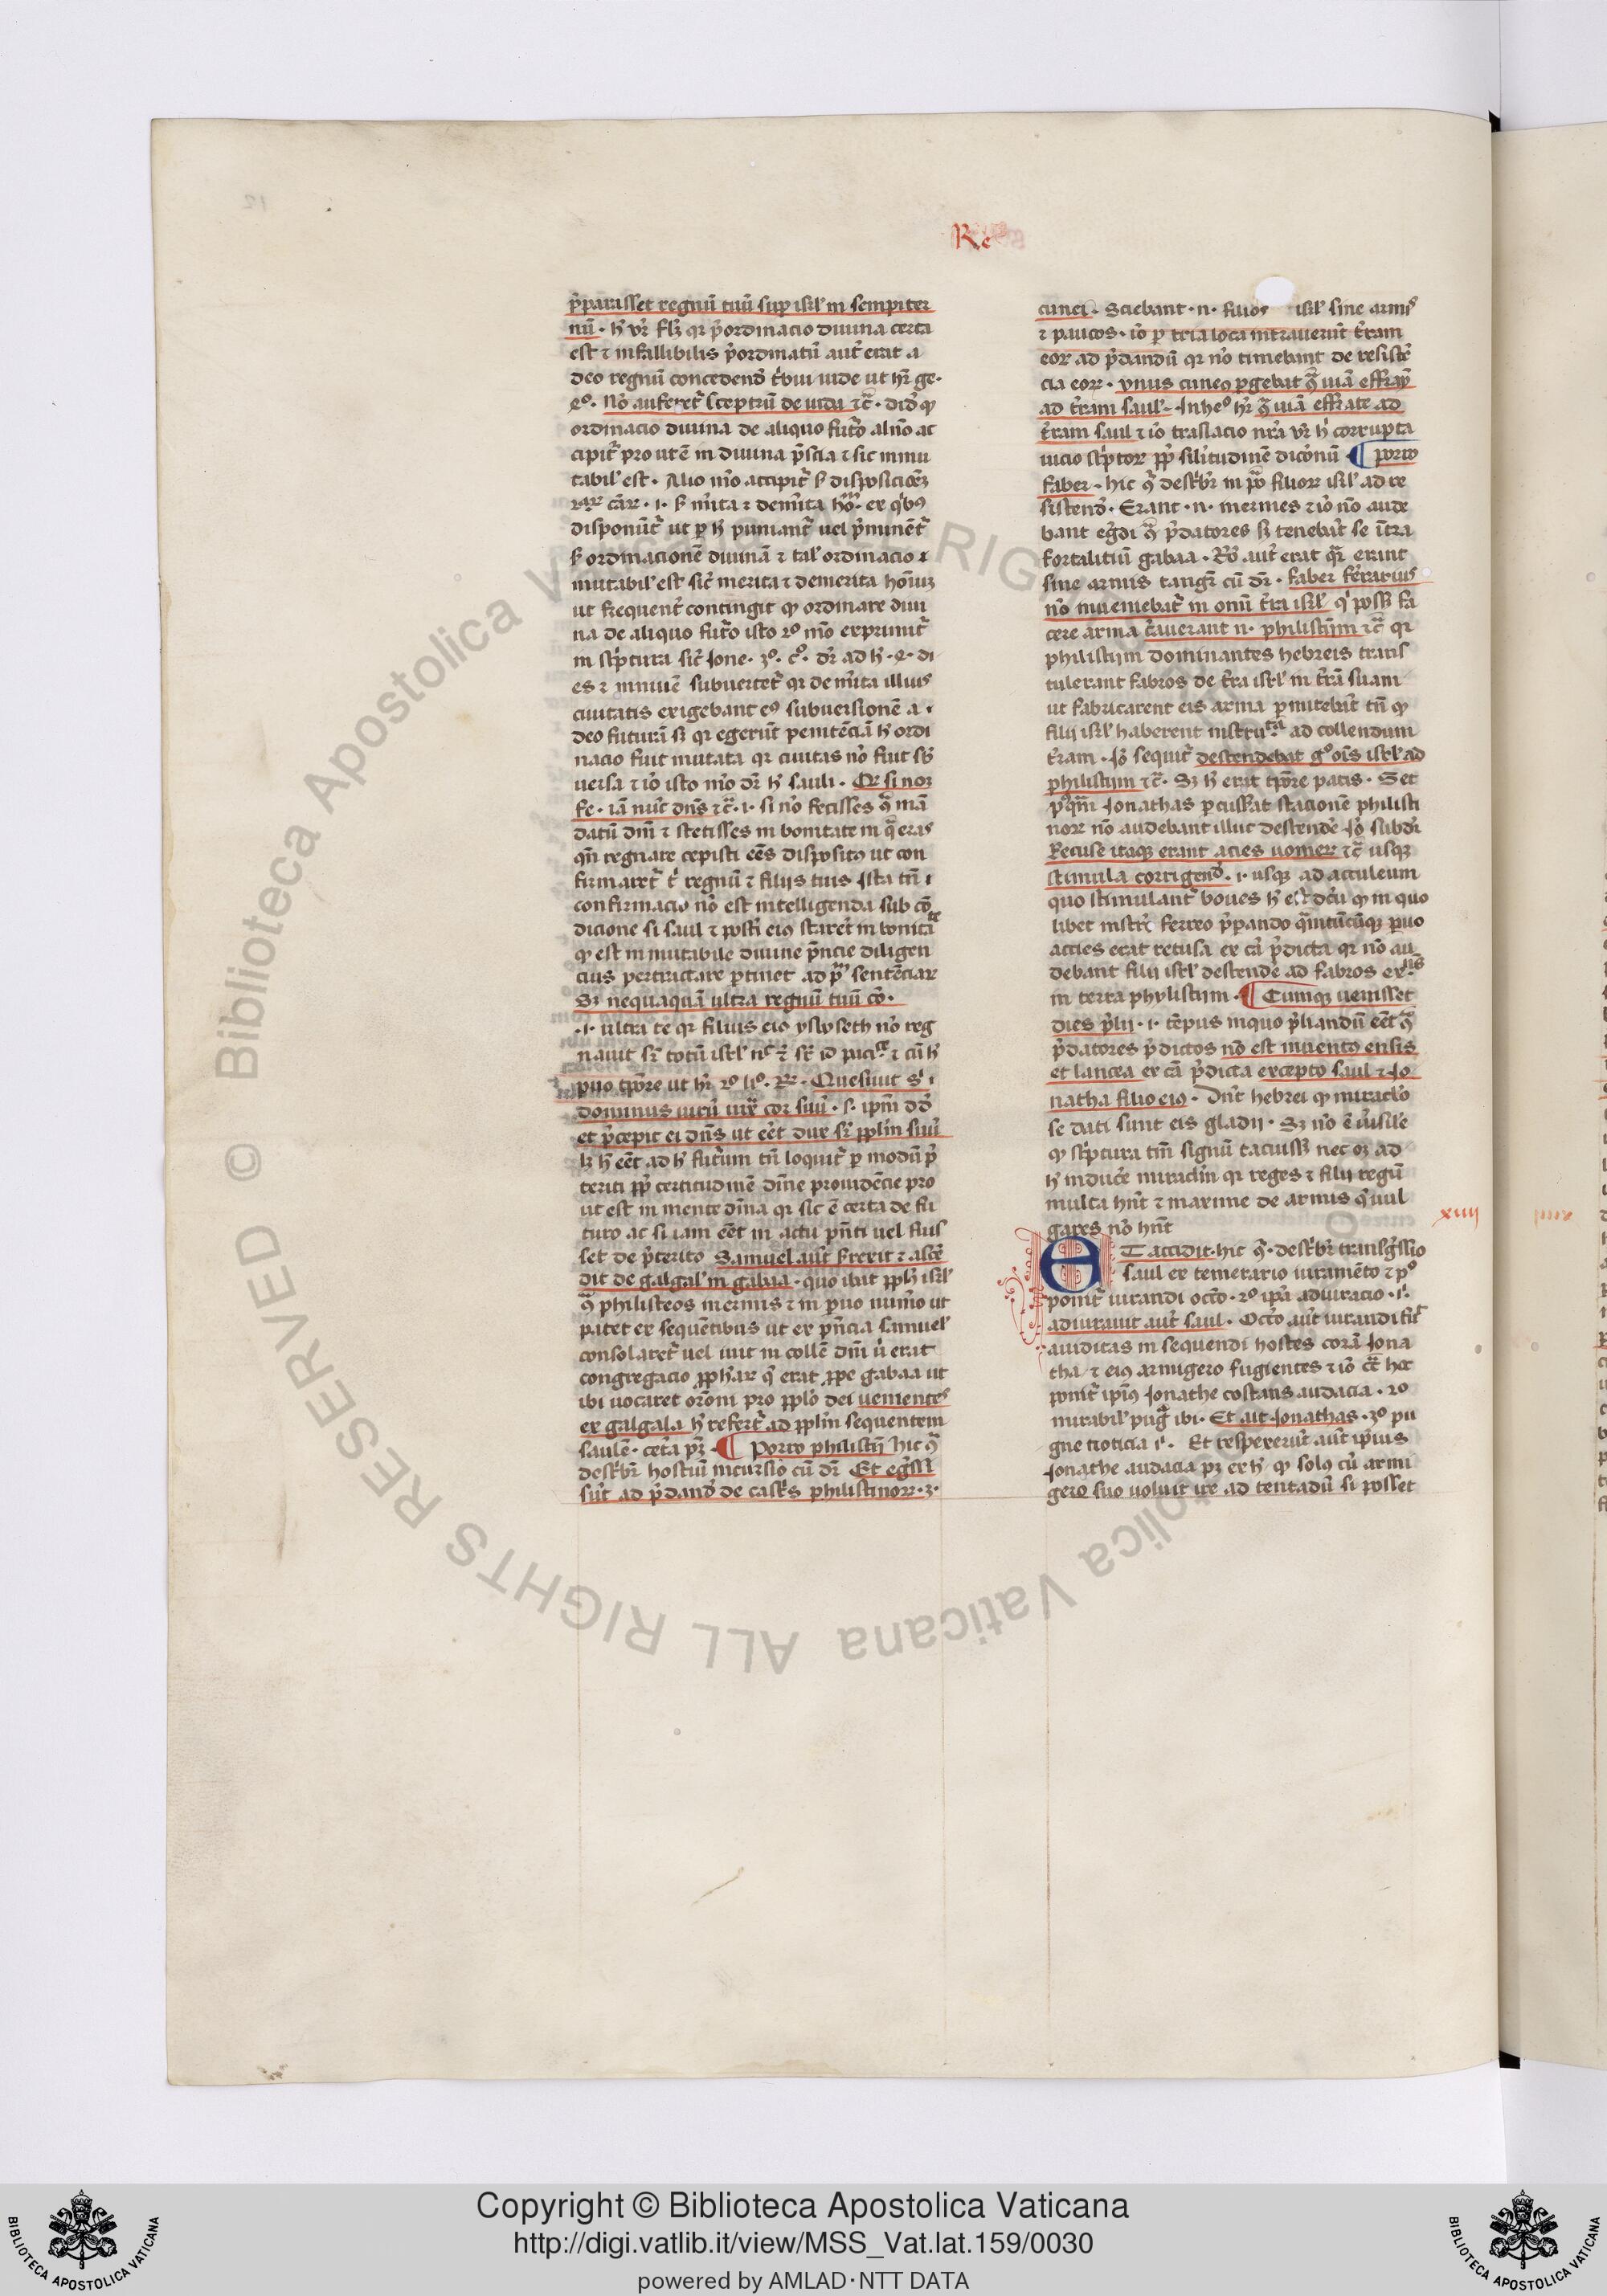 Re
p̄parasset regnū tuū suꝑ isrl' in sempiter
nū · h' vr̄ flm̄ qꝛ p̄ordinacio diuina certa
est ⁊ infallibilis p̄ordinatū aut̄ erat a
deo regnū concedend' tribui iude ut hr̄ ge·
No auferet̄ sceptrū de iuda ⁊c̄ · ꝙ
ordinacio diuina de aliquo futo al' mō ac
cipit̄ prout ē in diuina p̄scia ⁊ sic inmu
tabil' est · Alio mō accipit̄ disposicionem
disponūt̄ ut ꝑ h' puniant̄ uel p̄minēt̄
ordinacionē diuinā ⁊ tal' ordinacio ē
mutabil' est sic̄ merita ⁊ demerita hoīuꝫ
ut frequent̄ contingit ꝙ ordinate diui
na de aliquo futo isto 2º mō exprimit̄
in scptura sic̄ Jone · 3º · cº · dr̄ ad h' · di
es ⁊ niniuē subuertet̄ qꝛ demita illius
ciuitatis exigebant eꝰ subuersionē a ·
deo futurā sꝫ qꝛ egerūt penitēciā h' ordi
nacio fuit mutata qꝛ ciuitas nō fuit sb'
uersa ⁊ iō isto mō dr̄ h' sauli · Qꝛ si non
fe · iā nūc dn̄s ⁊c̄ · i · si nō fecisses ꝯ̄ mā
datū dn̄i ⁊ stetisses in bonitate in q̄ eras
qn̄ regnare cepisti eēs dispositꝰ ut con
firmaret̄ t' regnū ⁊ filijs tuis Ista tn̄ ·
confirmacio nō est intelligenda sub cō
dicione si saul ⁊ posti eiꝰ staret̄ in bonita
ꝙ est inmutabile diuine p̄ncie diligen
cius pertractare ꝑtinet ad p̄m sentēciaꝝ
Sꝫ nequaquā ultra regnū tuū cō ·
· i · ultra te qꝛ filius eiꝰ ysboseth nō reg
nauit sr̄ totū isrl' ⁊ cū h'
puo tp̄ore ut hr̄ 2º Rꝝ · Quesiuit s' ·
dominus uirū iuxᵃ cor suū · s · ipm̄ dd'
et p̄cepit ei dn̄s ut eēt dux sr̄ ppl̄m suū
lꝫ h' eēt ad h' futurum tn̄ loquit̄ ꝑ modū p̄
teriti pp̄ certitudinē diuīe prouidēcie pro
ut est in mente diuina qꝛ sic ē certa de fu
turo ac si iam eēt in actu pn̄ti uel fuis
set de p̄terito Samuel aūt surexit ⁊ ascē
dit de galgal' in gabaa · quo ibat ppl's isrl'
ꝯ̄ philisteos inermis ⁊ in puo numo ut
patet ex sequētibus ut ex pn̄cia samuel'
consolaret̄ uel iuit in collē dn̄i u' erat
congregacio pph'aꝝ q' erat ꝓpe gabaa ut
ibi uocaret orōni pro ppl'o dei uenientes
ex galgala h' refert̄ ad ppl̄m sequentem
saulē · cet̄a pꝫ · ¶ Porro philistij hic ꝯ̄
descbr̄ hostiū incursio cū dr̄ · Et eg̃ssi
sūt ad p̄dand' de castis philistinoꝝ · 3·
cunei · Sciebant · n · filios isrl' sine armis
⁊ paucos · iō ꝑ tria loca intrauerūt t̄ram
eoꝝ ad p̄dandū qꝛ nō timebant de resistē
cia eoꝝ · vnus cuneꝰ ꝑgebat ꝯ̄ uiā effray
ad t̄ram saul · Inheº hr̄ ꝯ̄ uiā effrate ad
t̄ram saul ⁊ iō traslacio nr̄a vr̄ h' corrupta
uicio scptoꝝ pp̄ silitudinē dicōnū · ¶ Porro
faber · hic ꝯ̄ descbr̄ filioꝝ isrl' ad re
sistend' · Erant · n · inermes ⁊ iō nō aude
bant eg̃di ꝯ̄ p̄datores sꝫ tenebāt se īt̄ra
fortalitiū gabaa · Rō aūt erat qr̄ erant
sine armis tangr̄ cū dr̄ · faber ferarius
nō inueniebat̄ in oniū t̄ra isrl' q' poss; fa
cere arma cauerant n · philistijm ⁊c̄ qꝛ
philistijm dominantes hebreis trans
tulerant fabros de t̄ra isrl' in t̄rā suam
ut fabricarent eis arma ꝑmitebāt tn̄ ꝙ
filij isrl' haberent instrumta ad collendum
t̄ram · Iō sequit̄ descendebat gº oīs isrl' ad
philistijm ⁊c̄ · Sꝫ h' erat tp̄ore pacis · Set
pꝰqm̄ Jonathas ꝑcusserat stacionē philisti
noꝝ nō audebant illuc descende Iō subdr̄
Retuse itaqꝫ erant acies uomeꝝ ⁊c̄ usqꝫ
stimula corrigend' · i · usqꝫ ad acculeum
quo stimulant̄ boues h' est dcū ꝙ in quo
libet instr̄o ferreo p̄parando q̄ntūcūqꝫ puo
acies erat retusa ex cā p̄dicta qꝛ nō au
debant filij isrl' descende ad fabros
in terra phylistijm · ¶ Cumqꝫ uenisset
dies p̄lij · i · tēpus inquo p̄liandū eēt ꝯ̄
p̄datores p̄dictos nō est inuentꝰ ensis
et lancea ex cā p̄dicta excepto saul ⁊ Jo
natha filio eiꝰ · Dn̄t hebrei ꝙ miraclo'
se dati sunt eis gladij · Sꝫ nō ē
ꝙ scptura tm̄ signū tacuiss; nec oꝫ ad
h' inducē miraclm̄ qꝛ reges ⁊ filij regū
multa hn̄t ⁊ maxime de armis q' uul
gares nō hn̄t
xiiij
Et accidit · hic ꝯ̄ · descbr̄ transg̃ssio
saul ex temerario iuramēto ⁊ pº
ponit̄ iurandi occō · 2º ipā adiuracio · i'
adiurauit aūt saul · Occō aūt iurandi fūt
auiditas insequendi hostes corā Jona
tha ⁊ eiꝰ armigero fugientes ⁊ iō hec
ponit̄ ipīꝰ Jonathe costans audacia · 2º
mirabil' pug̃ ibi · Et ait Jonathas · 3º pu
gne noticia i' · Et respexerūt aūt ipīus
Jonathe audacia pꝫ ex h' ꝙ solꝰ cū armi
gero suo uoluit ire ad tentadū si posset
Copyright © Biblioteca Apostolica Vaticana
http://digi.vatlib.it/view/MSS_Vat.lat.159/0030
powered by AMLAD·NTT DATA
BIBLIOTECA APOSTOLICA VATICANA
BIBLIOTECA APOSTOLICA VATICANA
© Biblioteca Apostolica Vaticana ALL RIGHTS RESERVED